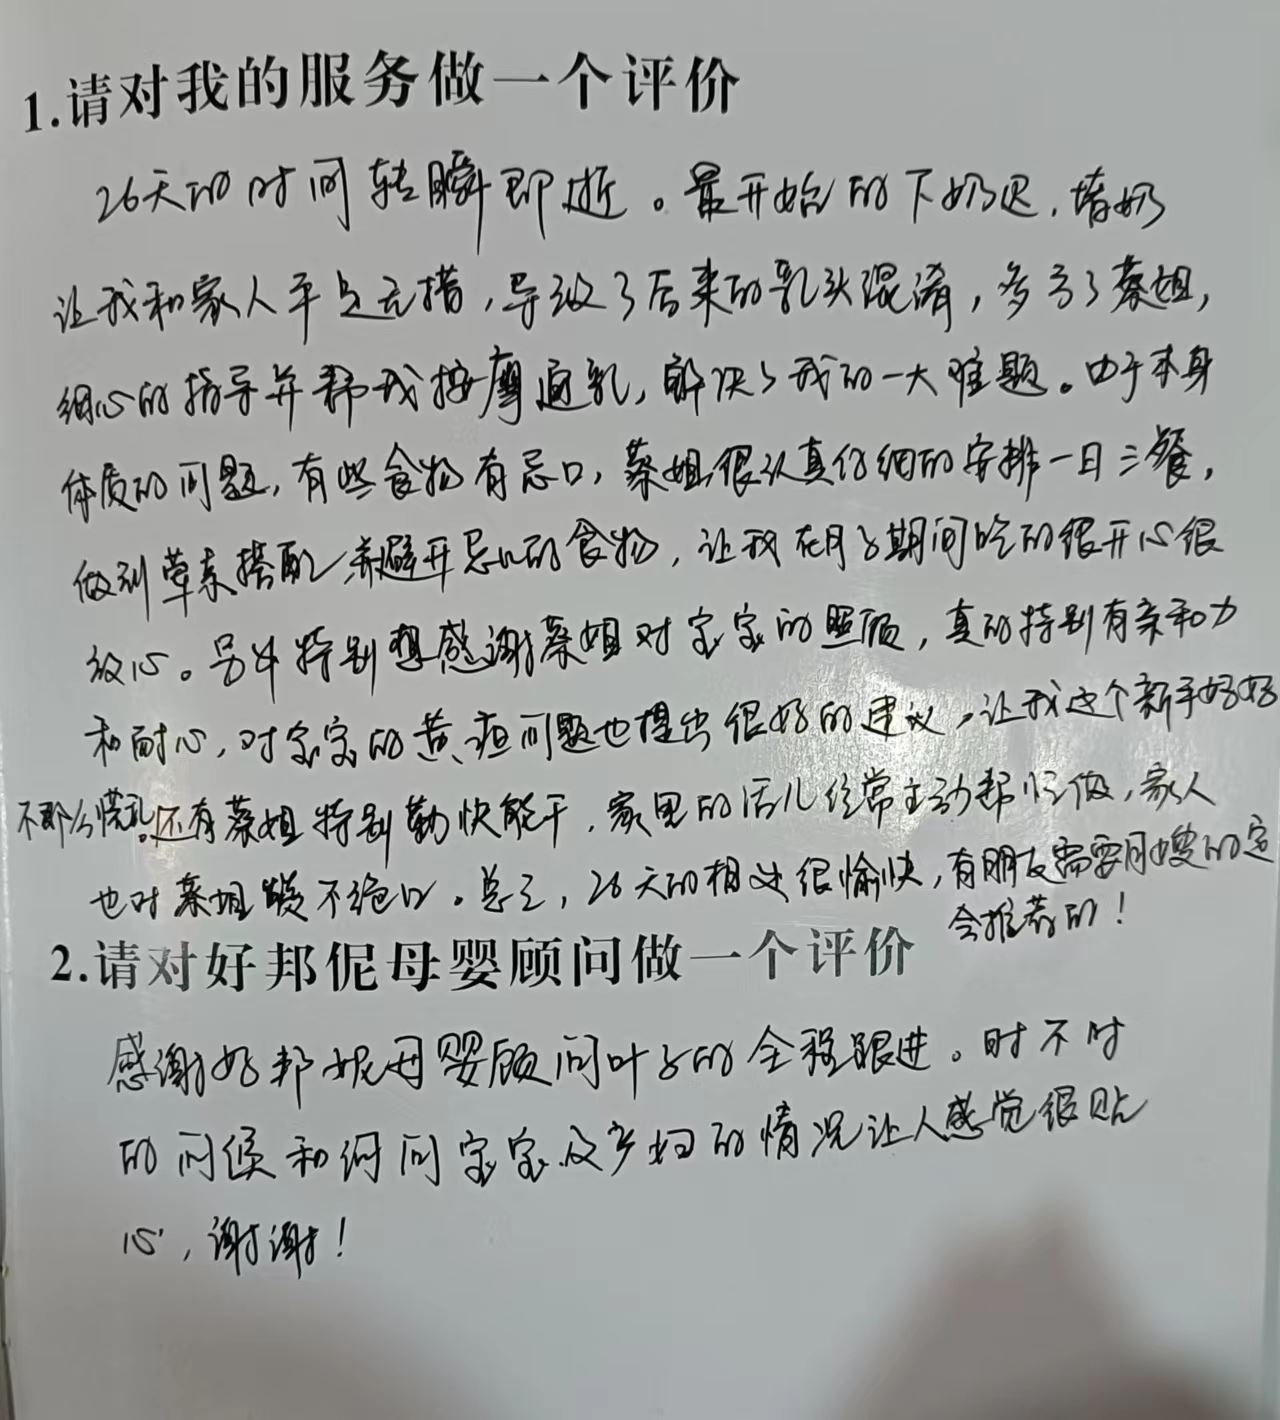 1.请对我的服务做一个评价
26天的时间转瞬即逝。最开始的下奶迟，堵奶
让我和家人手足无措，导致了后来的乳头混淆，多亏了蔡姐，
细心的指导并帮我按摩通乳，解决了我的一大难题。由于本身
体质的问题，有些食物有忌口，蔡姐很认真仔细的安排一日三餐，
做到荤素搭配，并避开忌口的食物，让我在月子期间吃的很开心很
放心。另外特别想感谢蔡姐对宝宝的照顾，真的特别有亲和力
和耐心，对宝宝的黄疸问题也提出很好的建议，让我这个新手妈妈
不那么慌乱。还有蔡姐特别勤快能干，家里的活儿经常主动帮忙做，家人
也对蔡姐赞不绝口。总之，26天的相处很愉快，有朋友需要月嫂的定
会推荐的！
2.请对好邦伲母婴顾问做一个评价
感谢好邦妮母婴顾问叶子的全程跟进。时不时
的问候和询问宝宝及产妇的情况让人感觉很贴
心，谢谢！